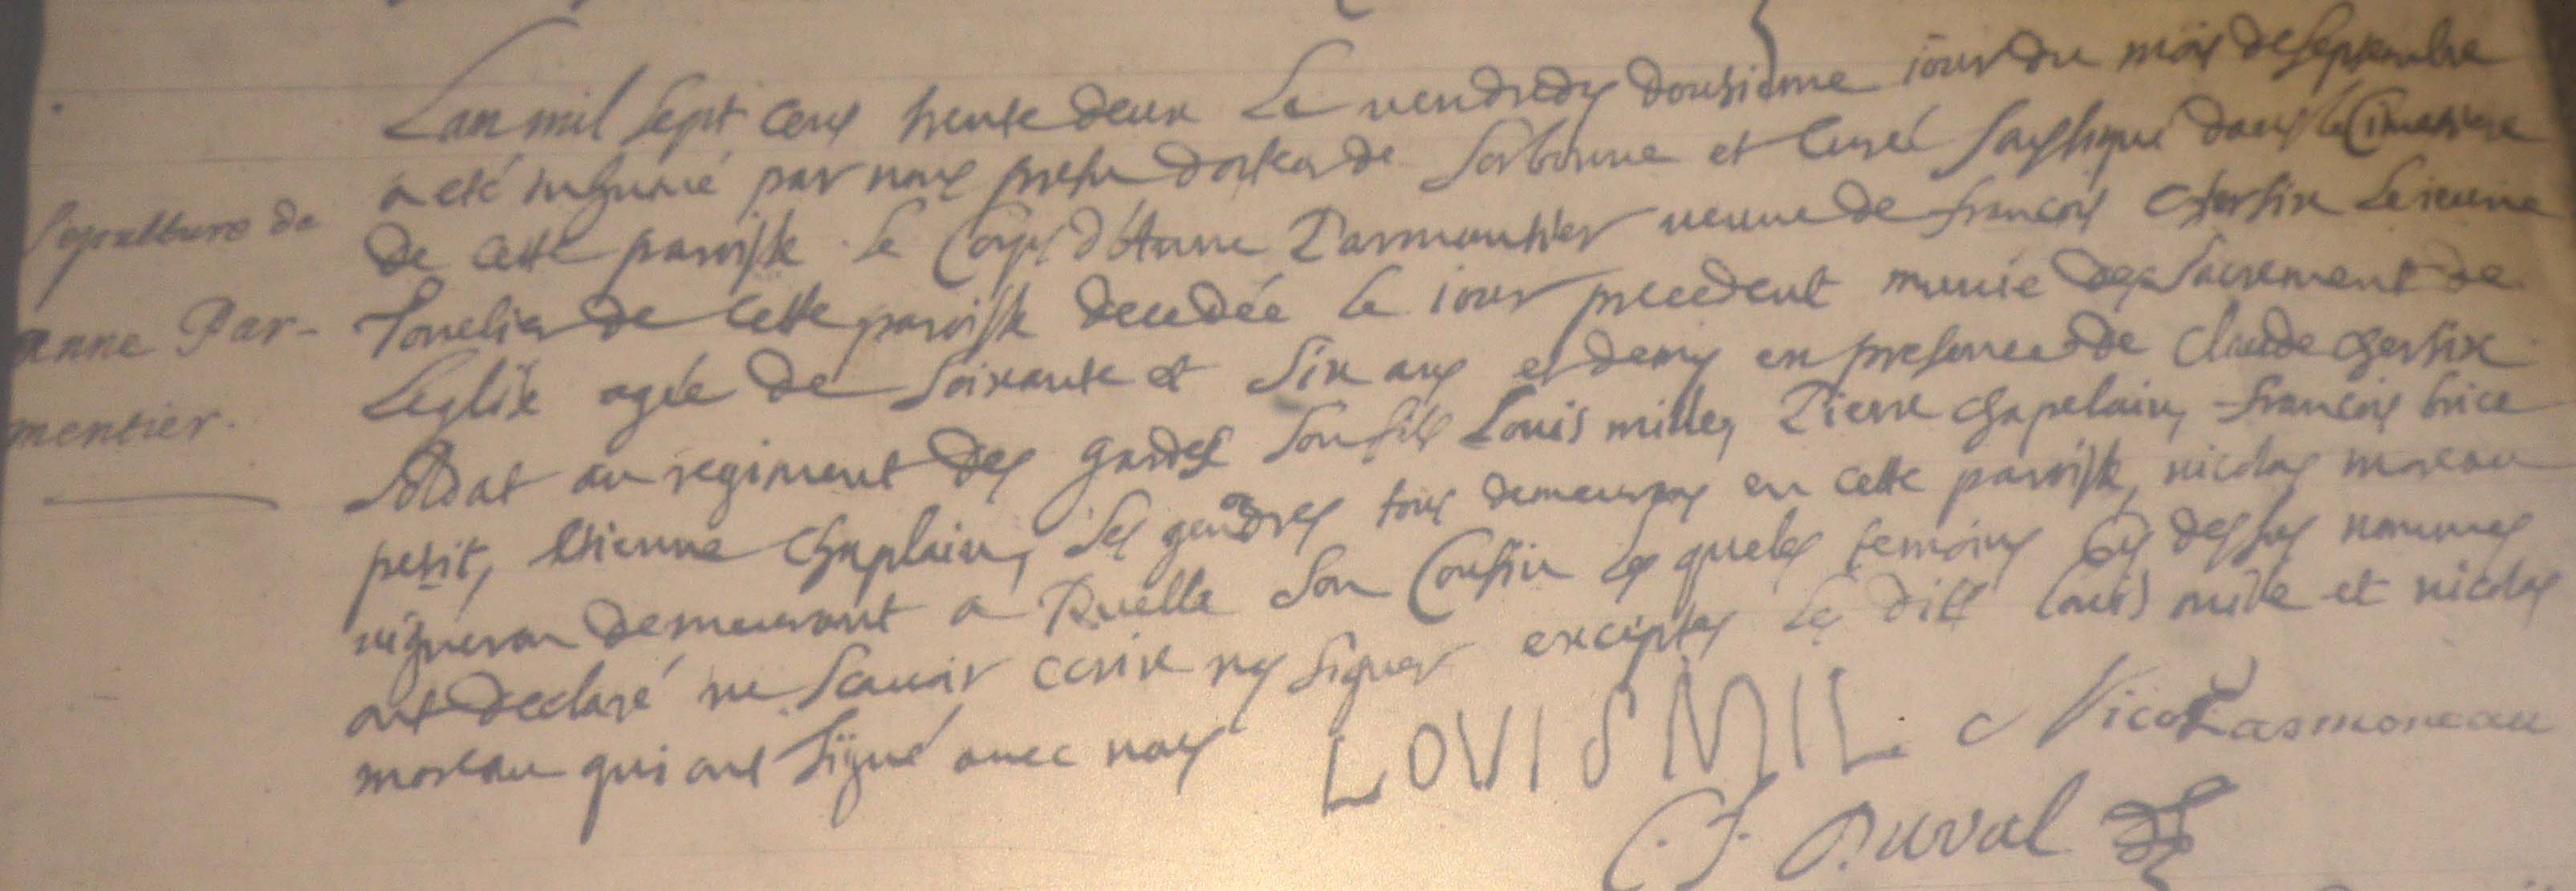 Sepulture de
anne Par-
mentier.
Lan mil sept cens trente deux Le vendredy douzieme jour du mois de septembre
a eté inhumé par nous pretre docteur de Sorbonne et Curé soussigné dans le Cimetiere
de cette paroisse le Corps d'Anne Parmentier veuve de françois Lejeune
Tonnelier de cette paroisse decedée le jour precedent munie des sacrement de
L'eglise agée de soixante et six ans et demy en presence de Claude
soldat au regiment des gardes son fils Louis mille, Pierre chapelain, françois brice
petit, Etienne Chaplain, ses gendres tous demeurans en cette paroisse, nicolas moreau
vigneron demeurant a Ruelle son Cousin lesquels temoins cy dessus nommes
ont declaré ne scavoir ecrire ny signer exceptes le dit Louis mille et nicolas
moreau qui ont signé avec nous LOVIS MIL Nicolas moreau
C. F. Duval